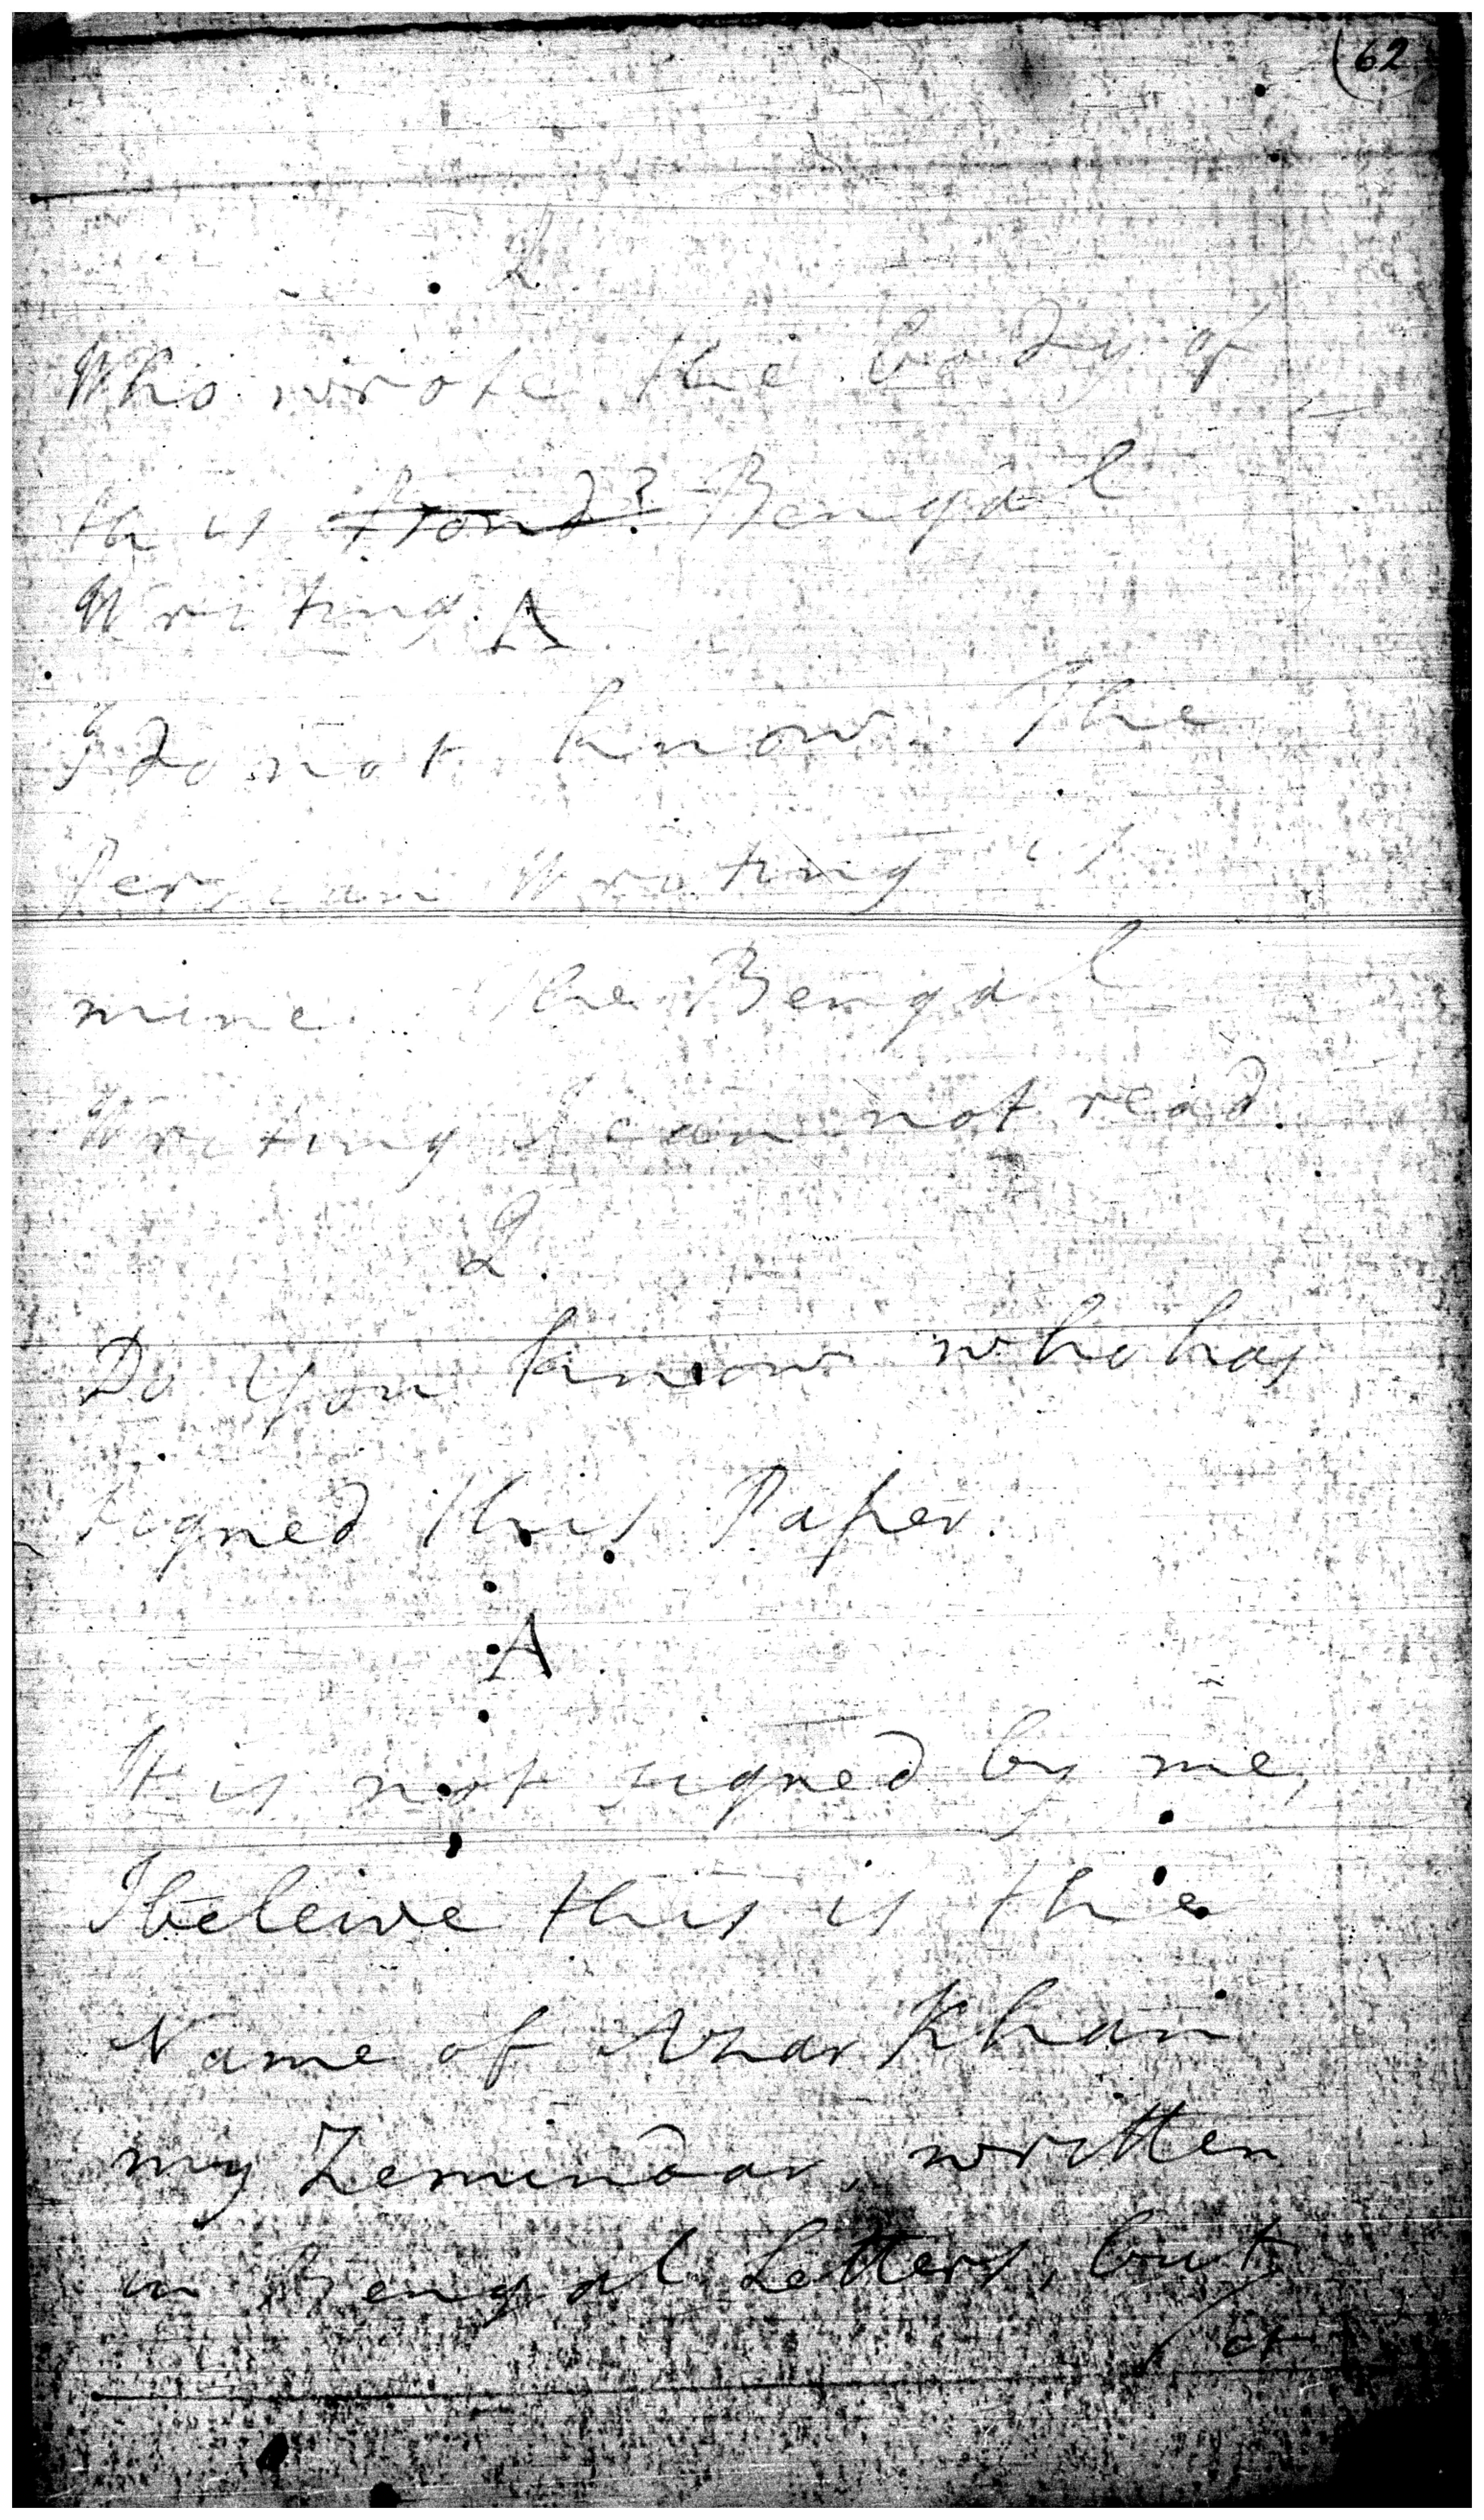 (62
Q.
Who wrote the body of
this ~~Bond?~~ Bengal
Writing. A.
I do not know. The
Persian Writing is
mine. The Bengal
Writing I can not read.
Q.
Do you know who has
signed this Paper.
A.
It is not signed by me,
I beleive this is the
Name of Khan
my Zemindar, written
in Bengal Letters, but
it